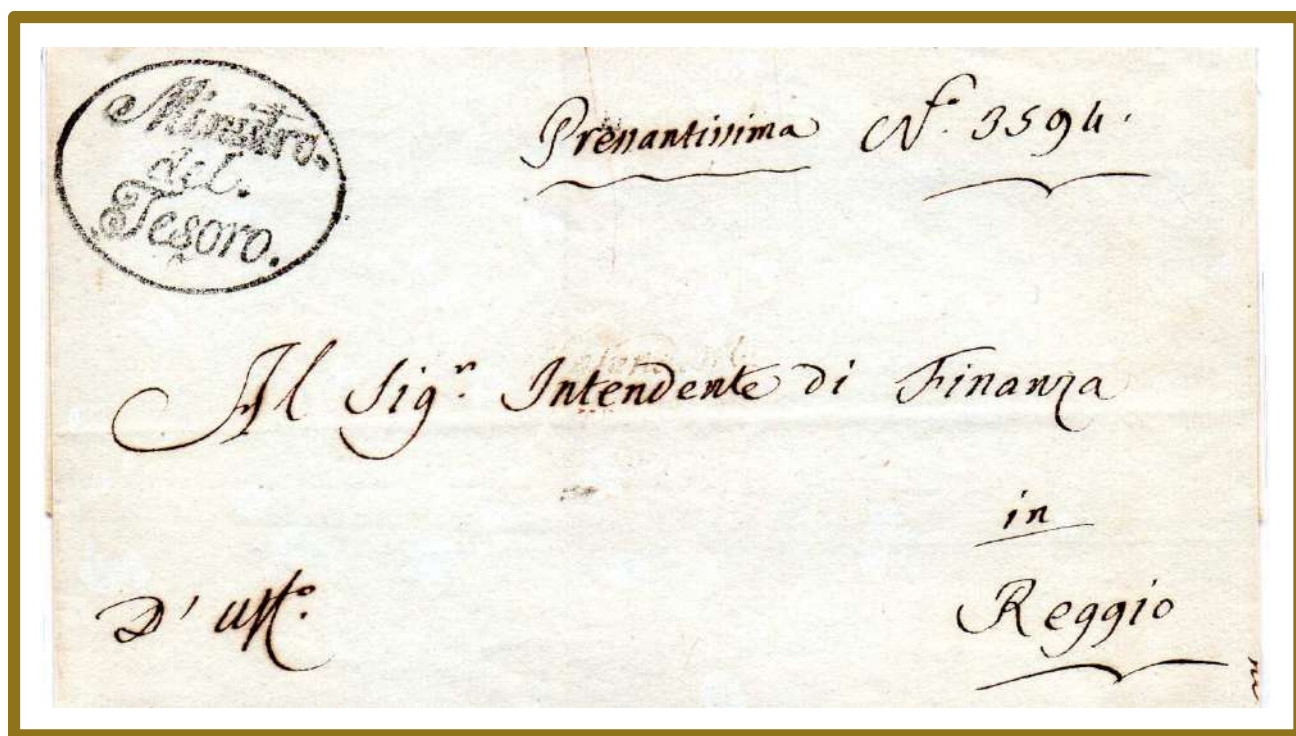 Ministro.
del.
Tesoro.
Pressantissima N.° 3594.
Al Sig.r Intendente di Finanza
in
Reggio
D' Uff.°